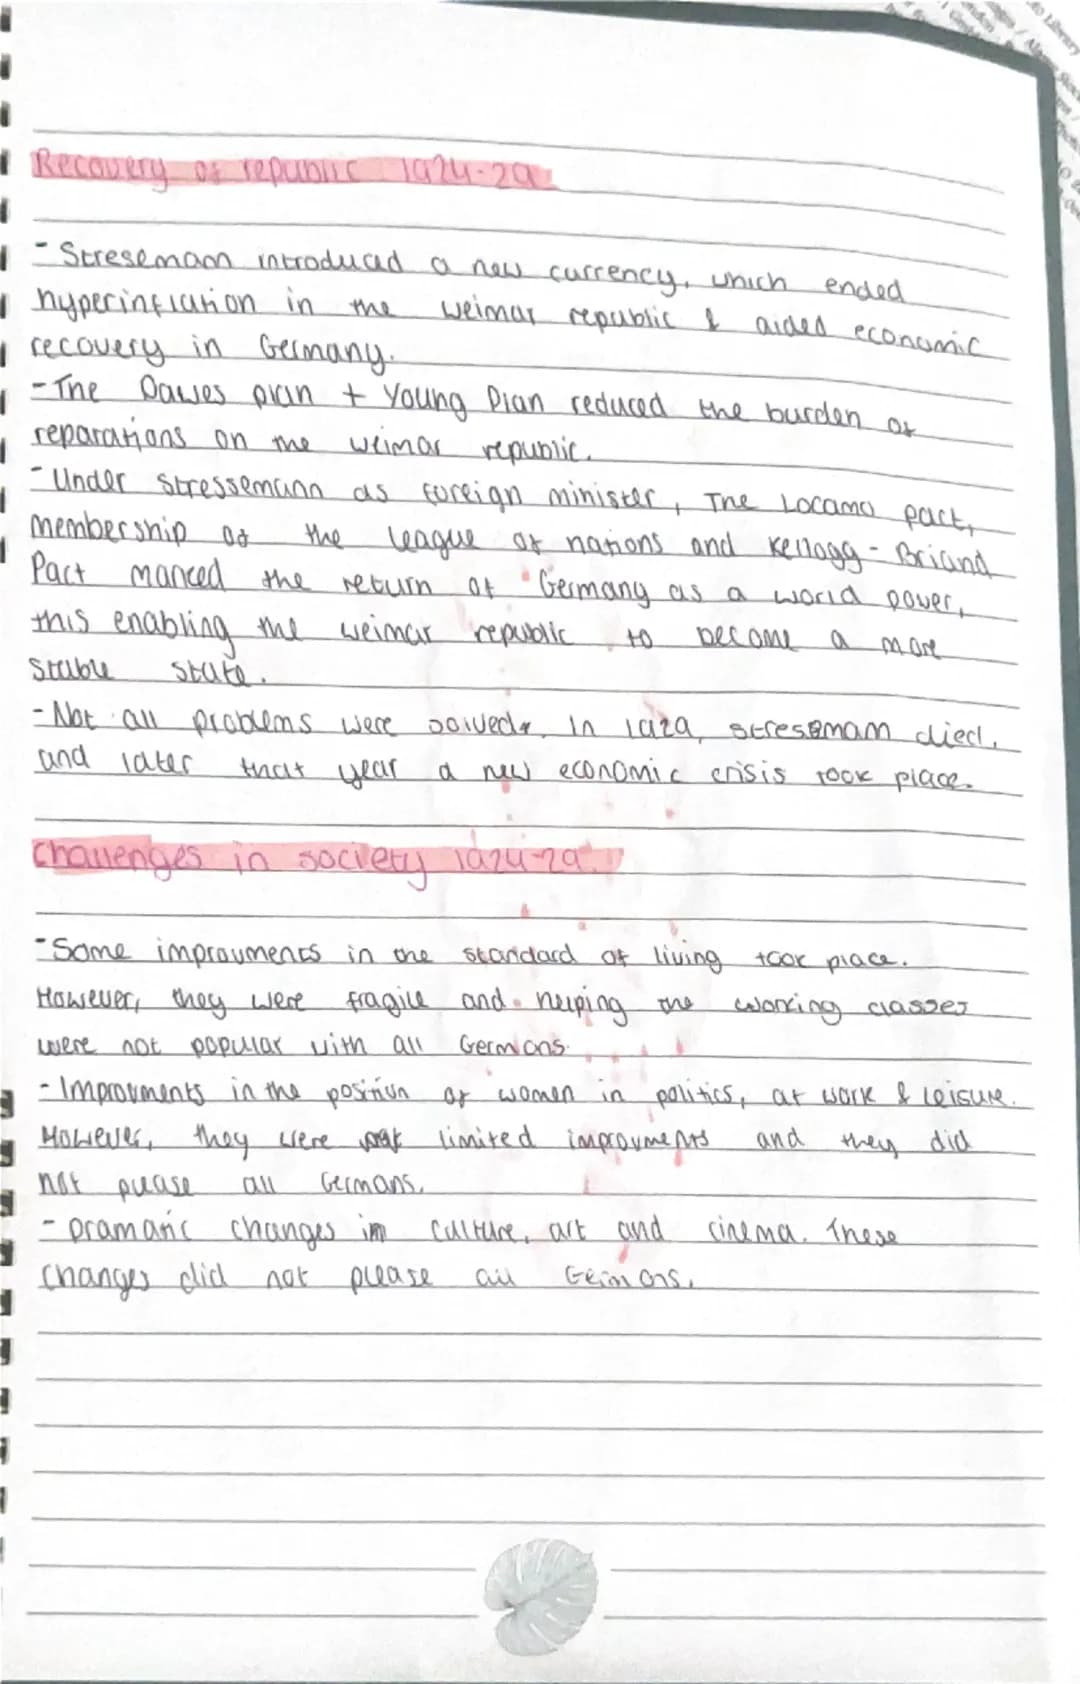 Recovery of republic 1924-29
- Stresemann introduced a new currency, which ended
hyperinflation in the weimar republic & aided economic
recovery in Germany.
- The Dawes plan + Young Plan reduced the burden of
reparations on the weimar republic.
- Under Stressemann as foreign minister, The Locarno pact,
membership of the league of nations and Kellogg - Briand
Pact marked the return of Germany as a world power,
this enabling the weimar republic to become a more
stable state.
- Not all problems were solved. In 1929, stresemann died,
and later that year a new economic crisis took place.
Challenges in society 1924-29
- Some improvments in the standard of living took place.
However, they were fragile and helping the working classes
were not popular with all Germans.
- Improvments in the position of women in politics, at work & leisure.
However, they were limited improvments and they did
not please all Germans.
- Dramatic changes in culture, art and cinema. These
changes did not please all Germans.
Library